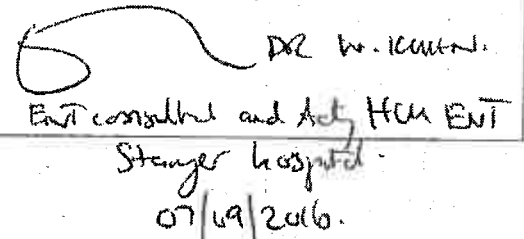 DR W.
ENT consultant and Actg HCU ENT
Stanger hospital.
07/09/2016.